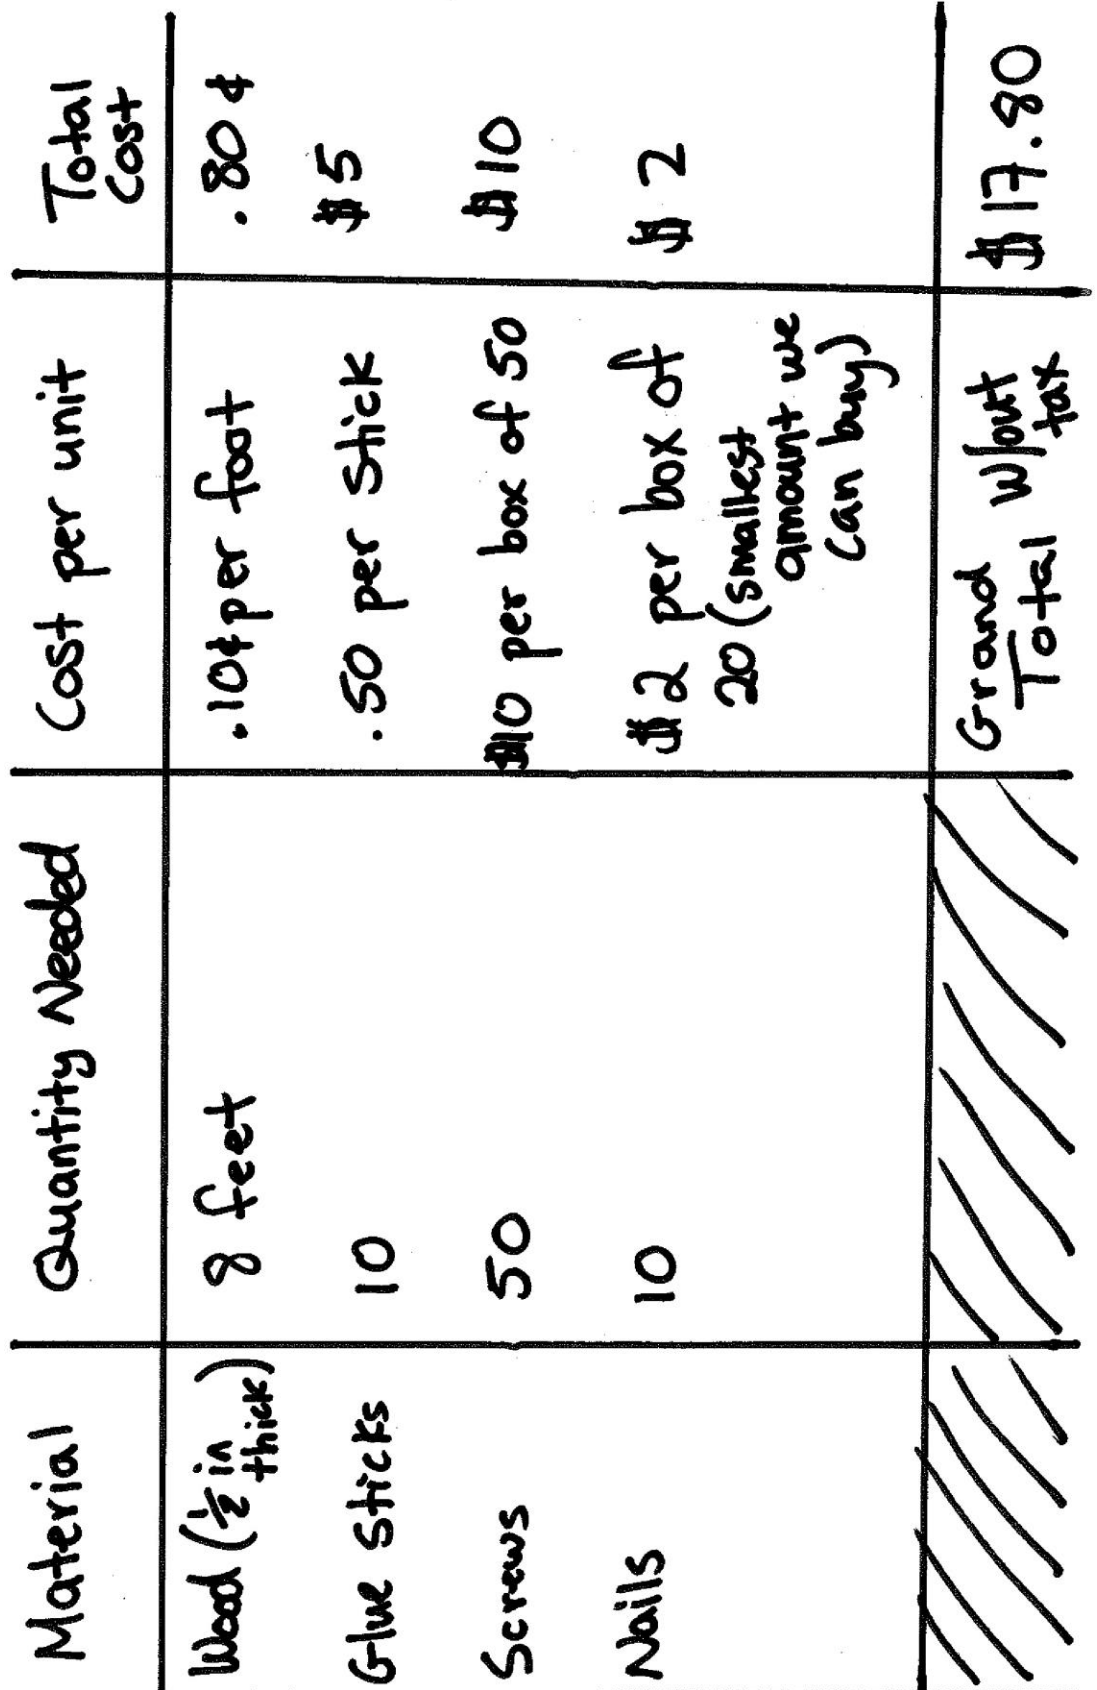 Material Quantity Needed Cost per unit Total
Cost
Wood (1/2 in
thick) 8 feet .10¢ per foot .80¢
Glue Sticks 10 .50 per stick $5
Screws 50 $10 per box of 50 $10
Nails 10 $2 per box of $2
20 (smallest
amount we
can buy)
Grand
Total W/out
tax $17.80